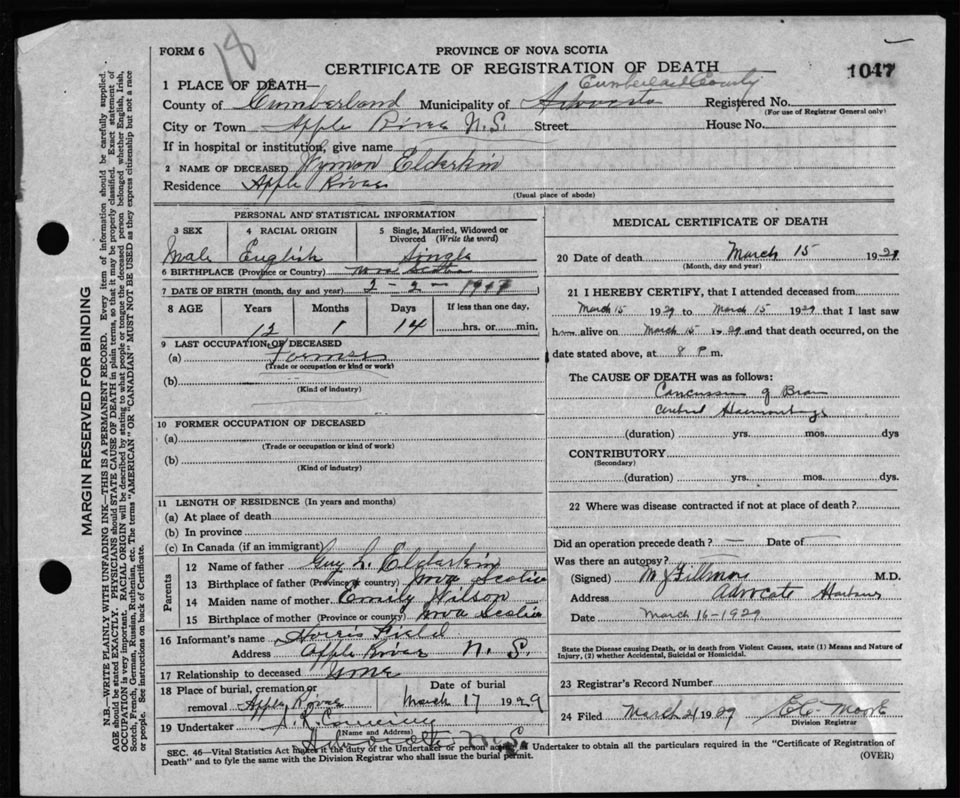 18
FORM 6
PROVINCE OF NOVA SCOTIA
CERTIFICATE OF REGISTRATION OF DEATH
1047
1 PLACE OF DEATH—
Cumberland County
County of Cumberland Municipality of Advocate Registered No.
(For use of Registrar General only)
City or Town Apple River N.S. Street House No.
If in hospital or institution, give name
2 NAME OF DECEASED Wyman Elderkin
Residence Apple River
(Usual place of abode)
PERSONAL AND STATISTICAL INFORMATION
3 SEX 4 RACIAL ORIGIN 5 Single, Married, Widowed or Divorced (Write the word)
Male English Single
6 BIRTHPLACE (Province or Country) Nova Scotia
7 DATE OF BIRTH (month, day and year) 2-2-1917
8 AGE Years Months Days If less than one day,
12 1 14 hrs. or min.
9 LAST OCCUPATION OF DECEASED
(a) Farmer
(Trade or occupation or kind or work)
(b)
(Kind of industry)
10 FORMER OCCUPATION OF DECEASED
(a)
(Trade or occupation or kind of work)
(b)
(Kind of industry)
11 LENGTH OF RESIDENCE (In years and months)
(a) At place of death
(b) In province
(c) In Canada (if an immigrant)
Parents
12 Name of father Guy L. Elderkin
13 Birthplace of father (Province or country) Nova Scotia
14 Maiden name of mother Emily Wilson
15 Birthplace of mother (Province or country) Nova Scotia
16 Informant's name Field
Address Apple River N. S.
17 Relationship to deceased
18 Place of burial, cremation or Date of burial
removal Apple River March 17 1929
19 Undertaker
(Name and Address)
N.S.
MEDICAL CERTIFICATE OF DEATH
20 Date of death March 15 1929
(Month, day and year)
21 I HEREBY CERTIFY, that I attended deceased from
March 15 1929 to March 15 1929 that I last saw
h alive on March 15 1929 and that death occurred, on the
date stated above, at 8 P m.
The CAUSE OF DEATH was as follows:
Concussion of Brain
Cerebral Haemorrhage
(duration) yrs. mos. dys
CONTRIBUTORY
(Secondary)
(duration) yrs. mos. dys.
22 Where was disease contracted if not at place of death?
Did an operation precede death? — Date of
Was there an autopsy?
(Signed) M J Fillmore M.D.
Address Advocate Harbour
Date March 16-1929
State the Disease causing Death, or in death from Violent Causes, state (1) Means and Nature of
Injury, (2) whether Accidental, Suicidal or Homicidal.
23 Registrar's Record Number
24 Filed March 21 1929 Moore
Division Registrar
SEC. 46—Vital Statistics Act makes it the duty of the Undertaker or person acting as Undertaker to obtain all the particulars required in the "Certificate of Registration of
Death" and to fyle the same with the Division Registrar who shall issue the burial permit.
(OVER)
MARGIN RESERVED FOR BINDING
N.B.—WRITE PLAINLY WITH UNFADING INK—THIS IS A PERMANENT RECORD. Every item of information should be carefully supplied.
AGE should be stated EXACTLY. PHYSICIANS should STATE CAUSE OF DEATH in plain terms, so that it may be properly classified. Exact statement of
OCCUPATION is very important. RACIAL ORIGIN will be described by stating to what people or tongue the deceased person belonged whether English, Irish,
Scotch, French, German, Russian, Ruthenian, etc. The terms "AMERICAN" OR "CANADIAN" MUST NOT BE USED as they express citizenship but not a race
or people. See instructions on back of Certificate.